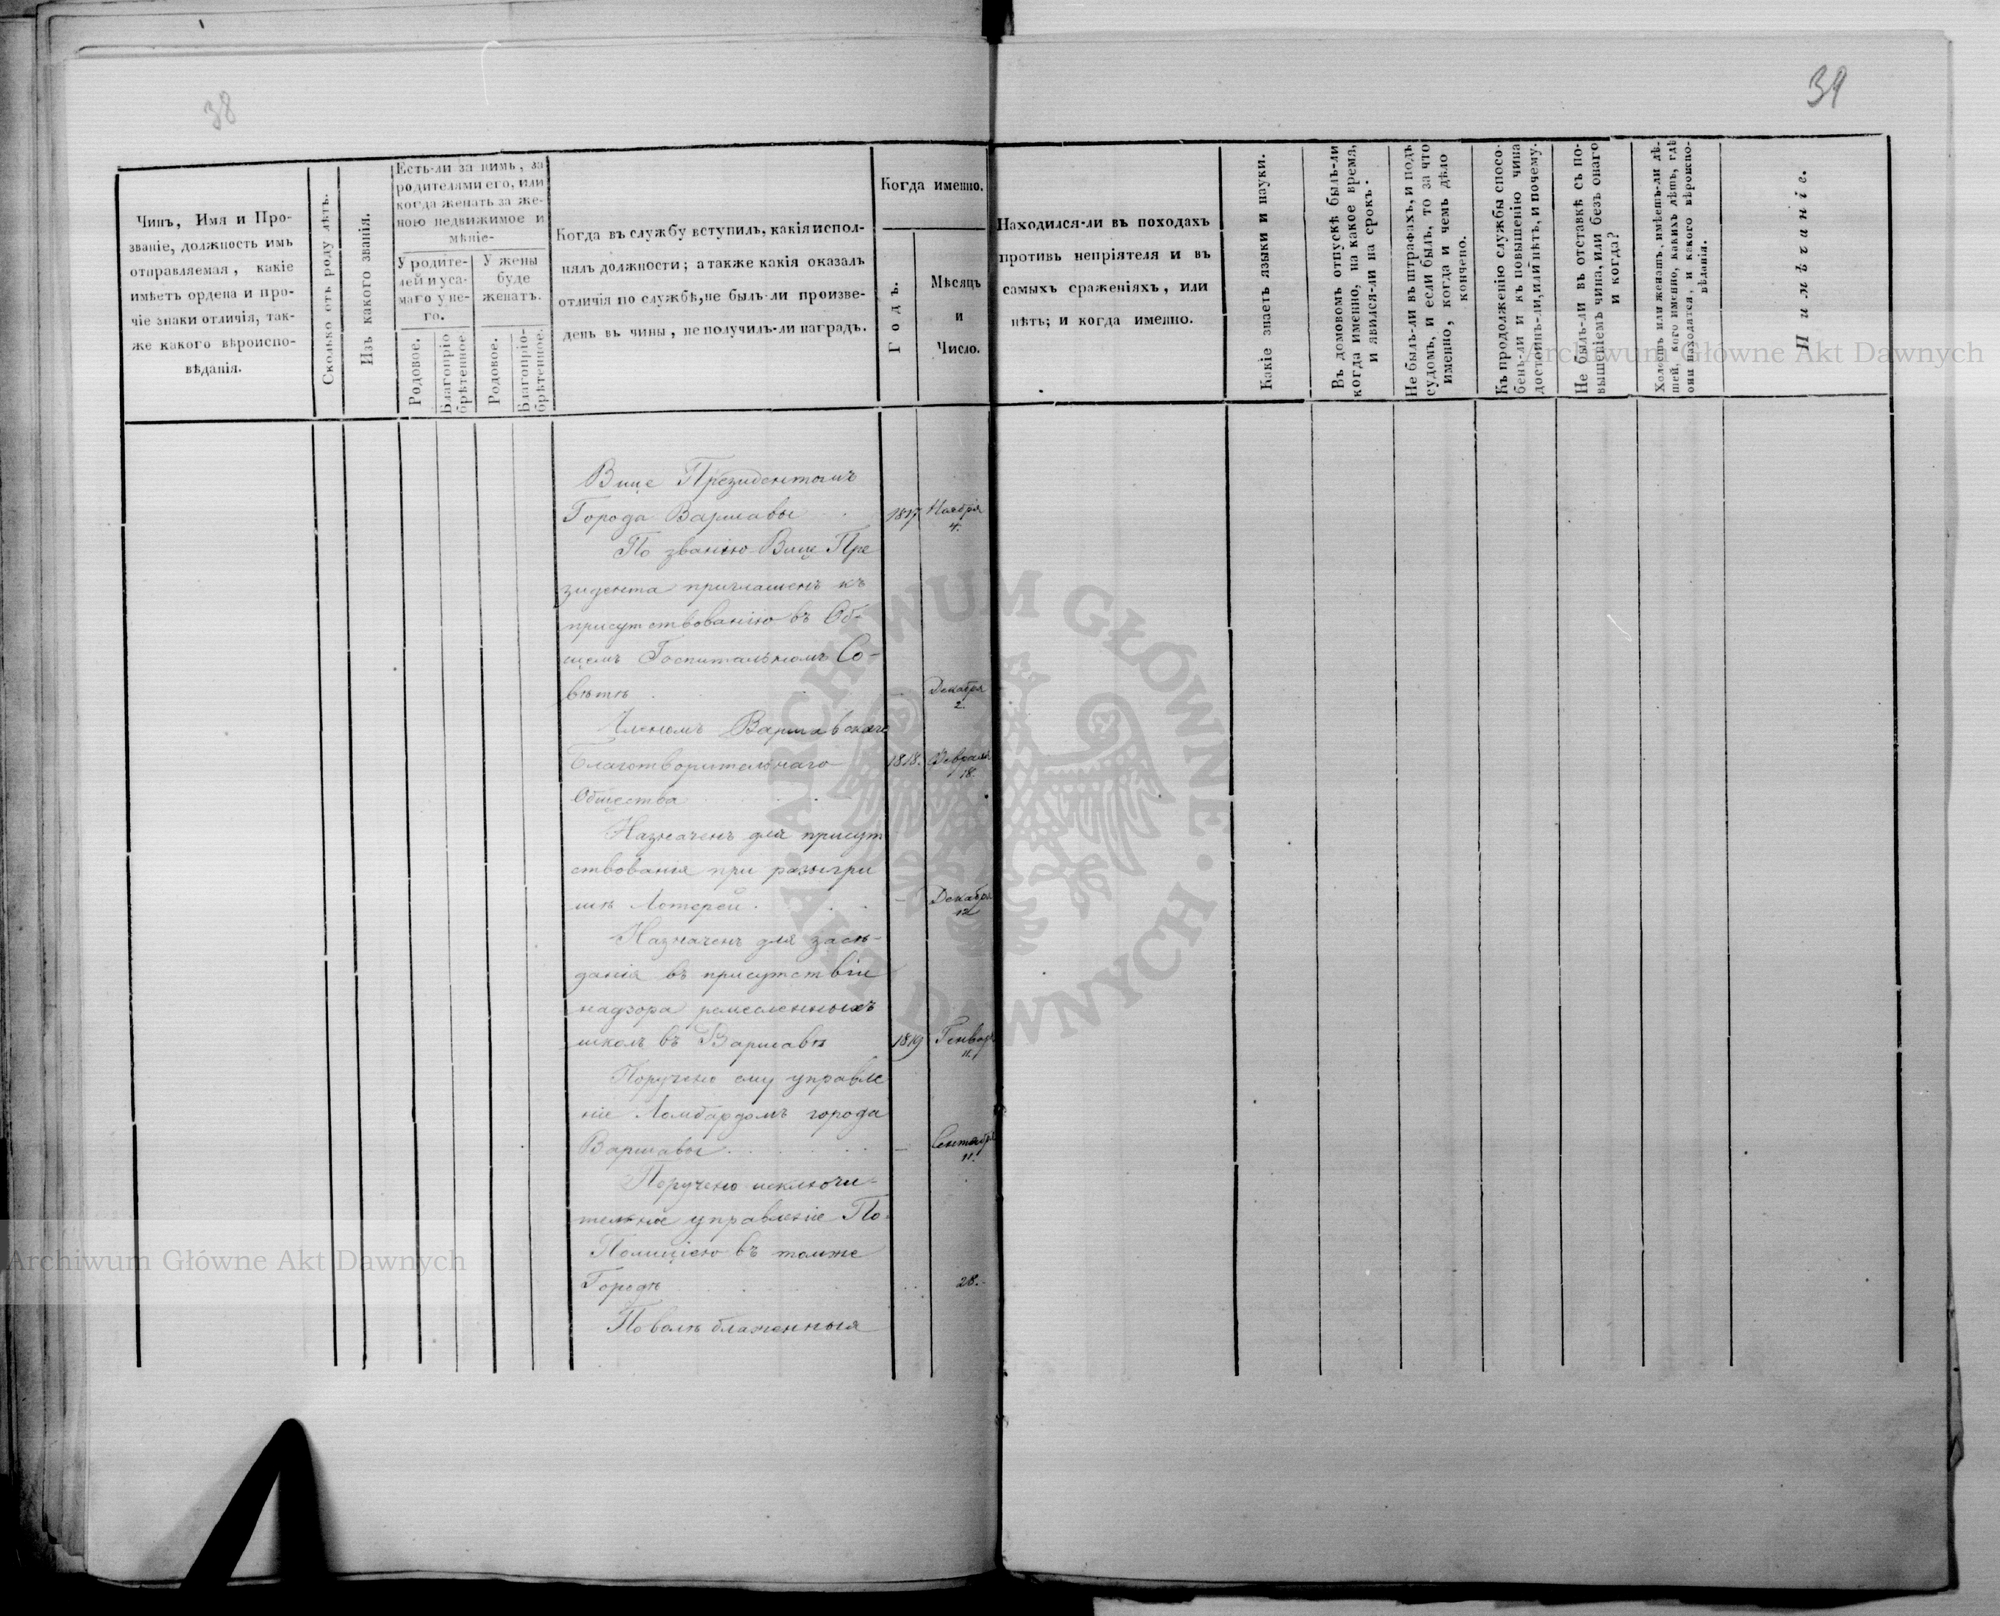 38
39
Чинъ, Имя и Про-
званіе, должность имъ
отправляемая, какіе
имѣетъ ордена и про-
чіе знаки отличія, так-
же какого вѣроиспо-
вѣданія.
Сколько отъ роду лѣтъ.
Изъ какого званія.
Есть-ли за нимъ, за
родителями его, или
когда женатъ за же-
ною недвижимое и
мѣніе-
У родите-
лей и уса-
маго у не-
го.
У жены
буде
женатъ.
Родовое.
Благопріо-
брѣтенное.
Родовое.
Благопріо-
брѣтенное.
Когда въ службу вступилъ, какія испол-
нялъ должности; а также какія оказалъ
отличія по службѣ, не былъ-ли произве-
денъ въ чины, не получилъ-ли наградъ.
Когда именно.
Годъ.
Мѣсяцъ
и
Число.
Находился-ли въ походахъ
противъ непріятеля и въ
самыхъ сраженіяхъ, или
нѣтъ; и когда именно.
Какіе знаетъ языки и науки.
Въ домовомъ отпускѣ былъ-ли
когда именно, на какое время,
и явился-ли на срокъ.
Не былъ-ли въ штрафахъ, и подъ
судомъ, и если былъ, то за что
именно, когда и чемъ дѣло
кончено.
Къ продолженію службы спосо-
бенъ-ли и къ повышенію чина
достоинъ-ли, или нѣтъ, и почему.
Не былъ-ли въ отставкѣ съ по-
вышеніемъ чина, или безъ онаго
и когда?
Холостъ или женатъ, имѣетъ-ли дѣ-
тей, кого именно, какихъ лѣтъ, гдѣ
они находятся, и какого вѣроиспо-
вѣданія.
Примѣчаніе.
Вице Президентомъ
Города Варшавы . 1817 Ноября
4.
По званію Вице Пре
зидента приглашенъ къ
присутствованію въ Об-
щемъ Госпитальномъ Со-
вѣтѣ . . . — Декабря
2
Членомъ Варшавскаго
Благотворительнаго 1818. Февраля
18.
Общества . . .
Назначенъ для присут
ствованія при розыгры
шѣ Лотереи . . . — Декабря
12
Назначенъ для засѣ-
данія въ присутствіи
надзора ремесленныхъ
школъ въ Варшавѣ 1819 Генваря
11.
Поручено ему управле
ніе Ломбардомъ города
Варшавы . . . . . — Сентября
11.
Поручено исключи-
тельное управленіе По-
Полиціею въ томже
Городѣ . . . . . . 28.
По волѣ блаженныя
Archiwum Główne Akt Dawnych
Archiwum Główne Akt Dawnych
ARCHIWUM GŁÓWNE · AKT DAWNYCH ·